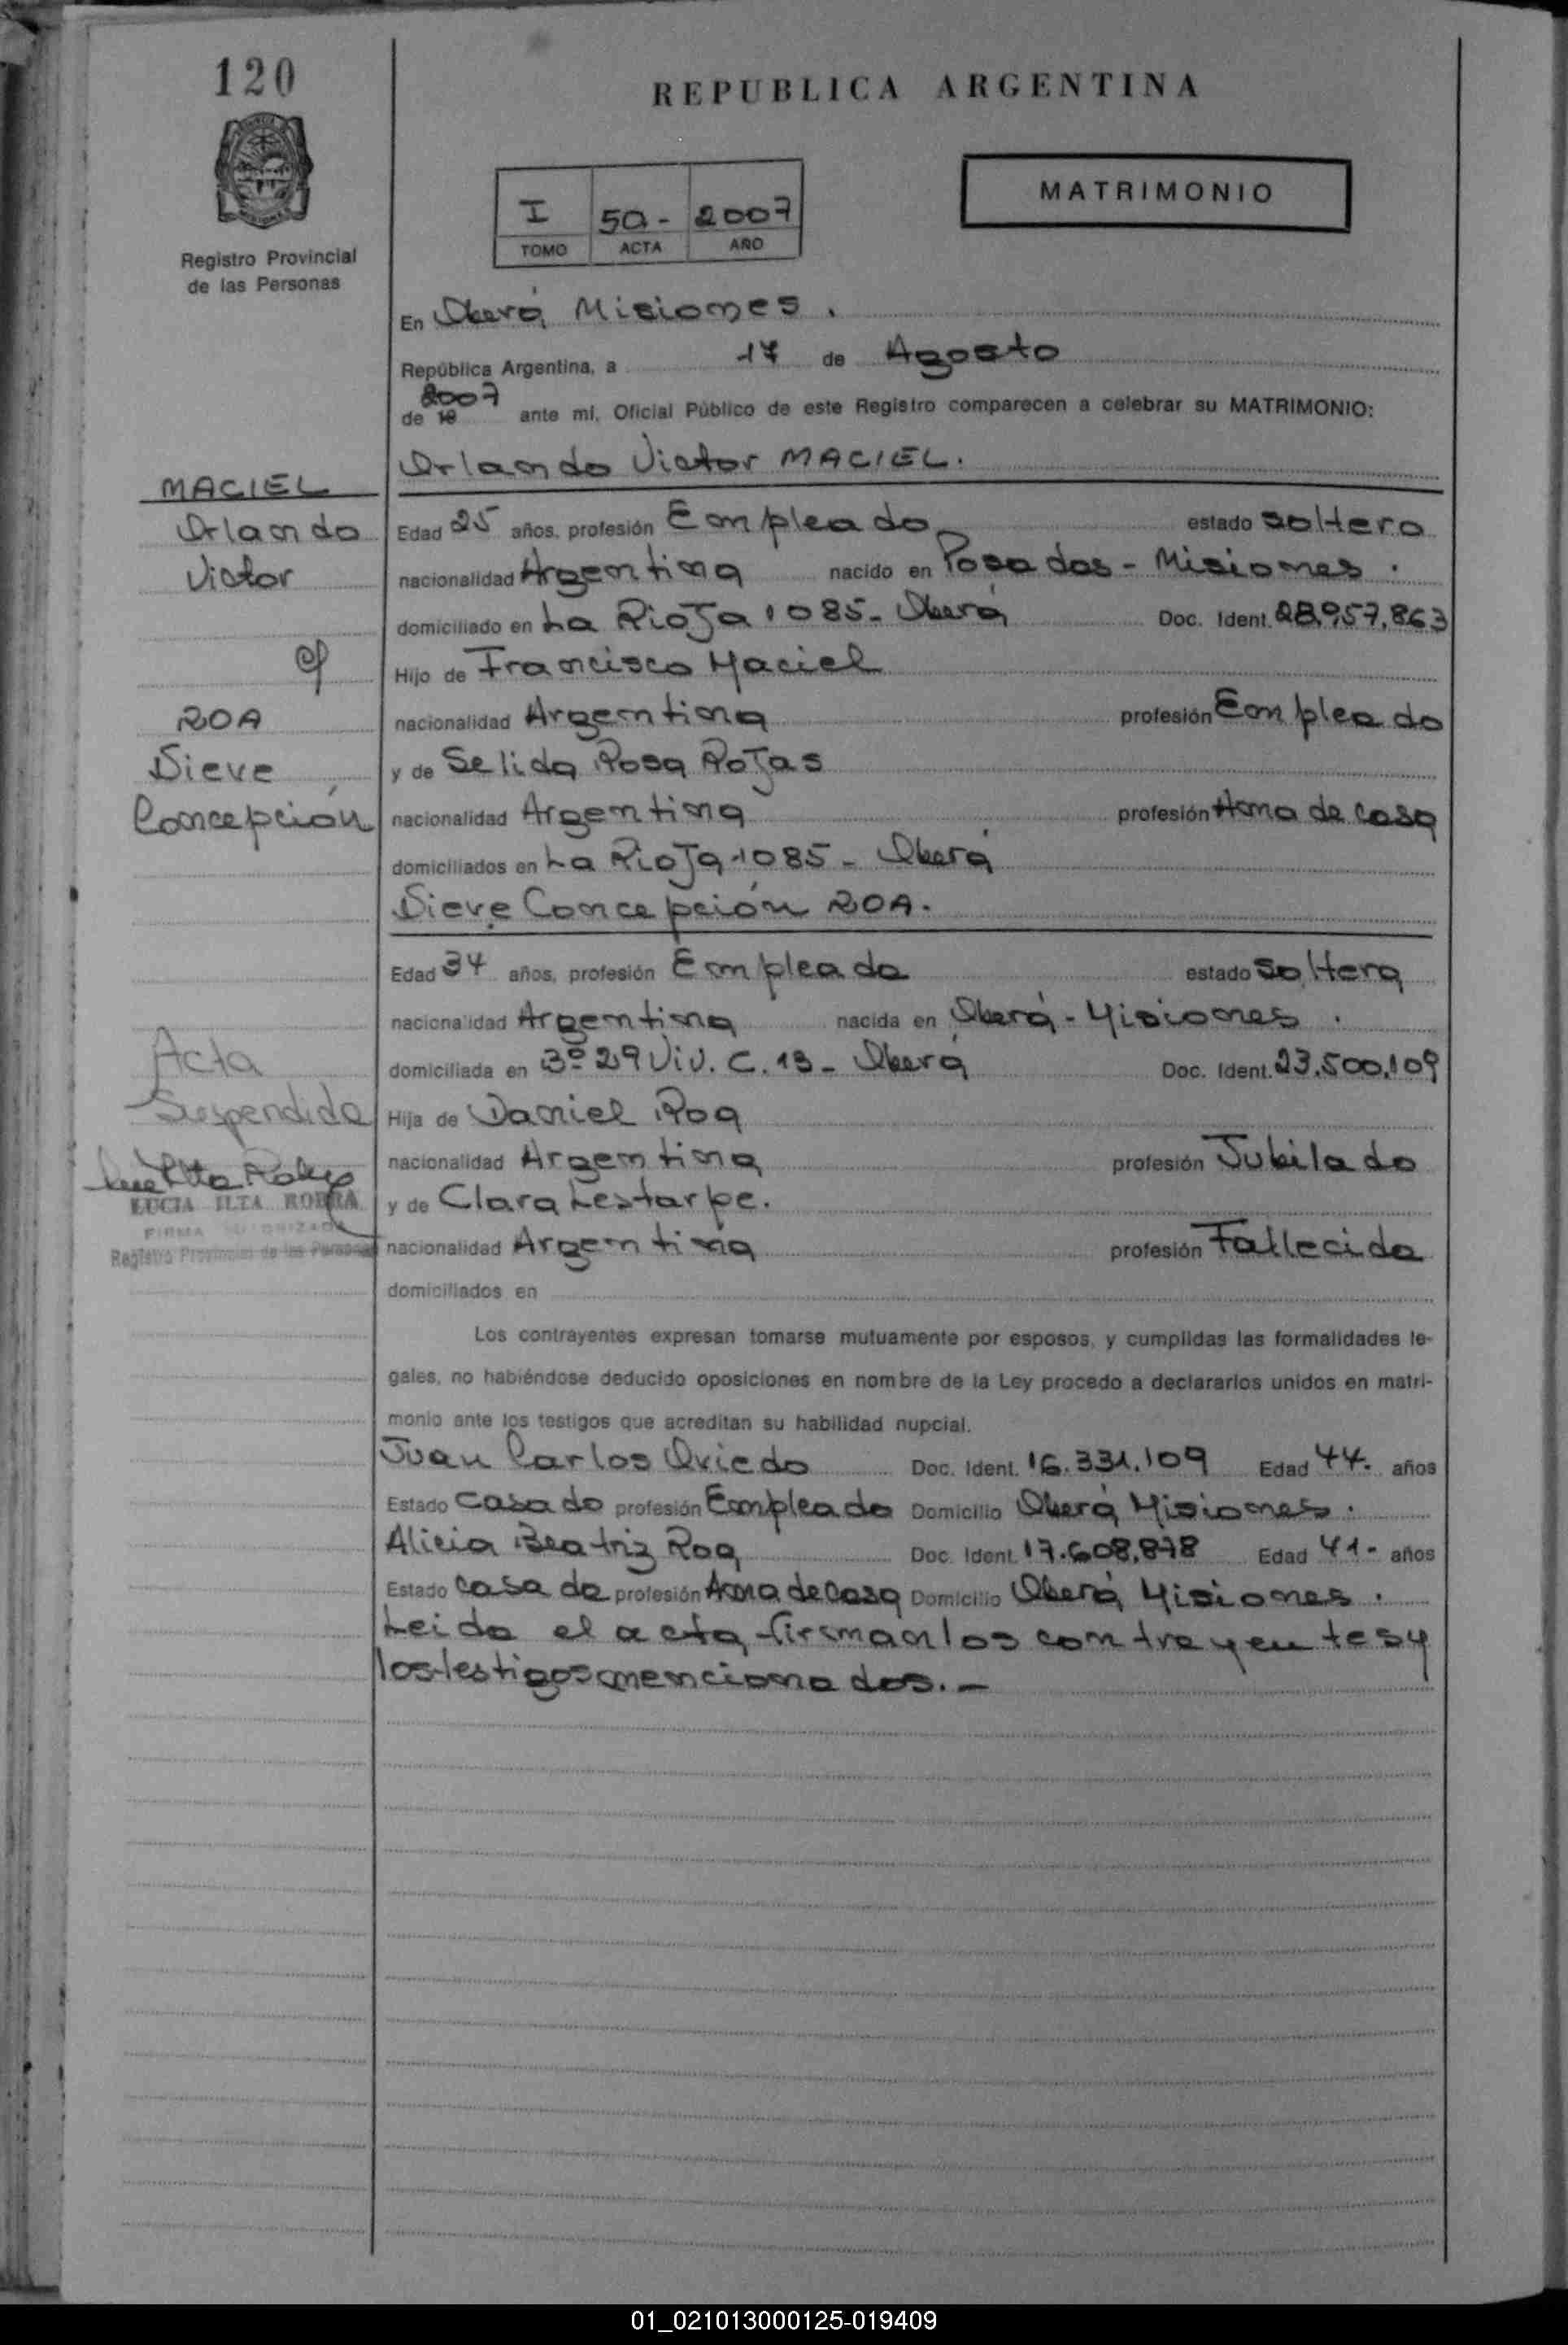 120
REPUBLICA ARGENTINA
MATRIMONIO
I 50- 2007
TOMO ACTA AÑO
Registro Provincial
de las Personas
En Oberá Misiones.
República Argentina, a 17 de Agosto
de 19 2007 ante mí, Oficial Público de este Registro comparecen a celebrar su MATRIMONIO:
Orlando Victor MACIEL.
MACIEL
Orlando
Victor
c/
ROA
Dieve
Concepción
Edad 25 años, profesión Empleado estado soltero
nacionalidad Argentina nacido en Posadas - Misiones.
domiciliado en La Rioja 1085- Oberá Doc. Ident. 28.957.863
Hijo de Francisco Maciel
nacionalidad Argentina profesión Empleado
y de Selida Rosa Rojas
nacionalidad Argentina profesión Ama de casa
domiciliados en La Rioja 1085 - Oberá
Dieve Concepción ROA.
Edad 34 años, profesión Empleada estado soltera
nacionalidad Argentina nacida en Oberá - Misiones.
domiciliada en 3º 29 Viv. C. 13 - Oberá Doc. Ident. 23.500.109
Hija de Daniel Roa
nacionalidad Argentina profesión Jubilado
y de Clara Lestarpe.
nacionalidad Argentina profesión Fallecida
domiciliados en
Acta
Suspendida
LUCIA ILTA ROBRA
FIRMA AUTORIZADA
Registro Provincial de las Personas
Los contrayentes expresan tomarse mutuamente por esposos, y cumplidas las formalidades le-
gales, no habiéndose deducido oposiciones en nombre de la Ley procedo a declararlos unidos en matri-
monio ante los testigos que acreditan su habilidad nupcial.
Juan Carlos Oviedo Doc. Ident. 16.331.109 Edad 44- años
Estado Casado profesión Empleado Domicilio Oberá Misiones.
Alicia Beatriz Roa Doc. Ident. 17.608.878 Edad 41- años
Estado Casada profesión Ama de Casa Domicilio Oberá Misiones.
Leida el acta, firman los contrayentes y
los testigos mencionados.-
01_021013000125-019409